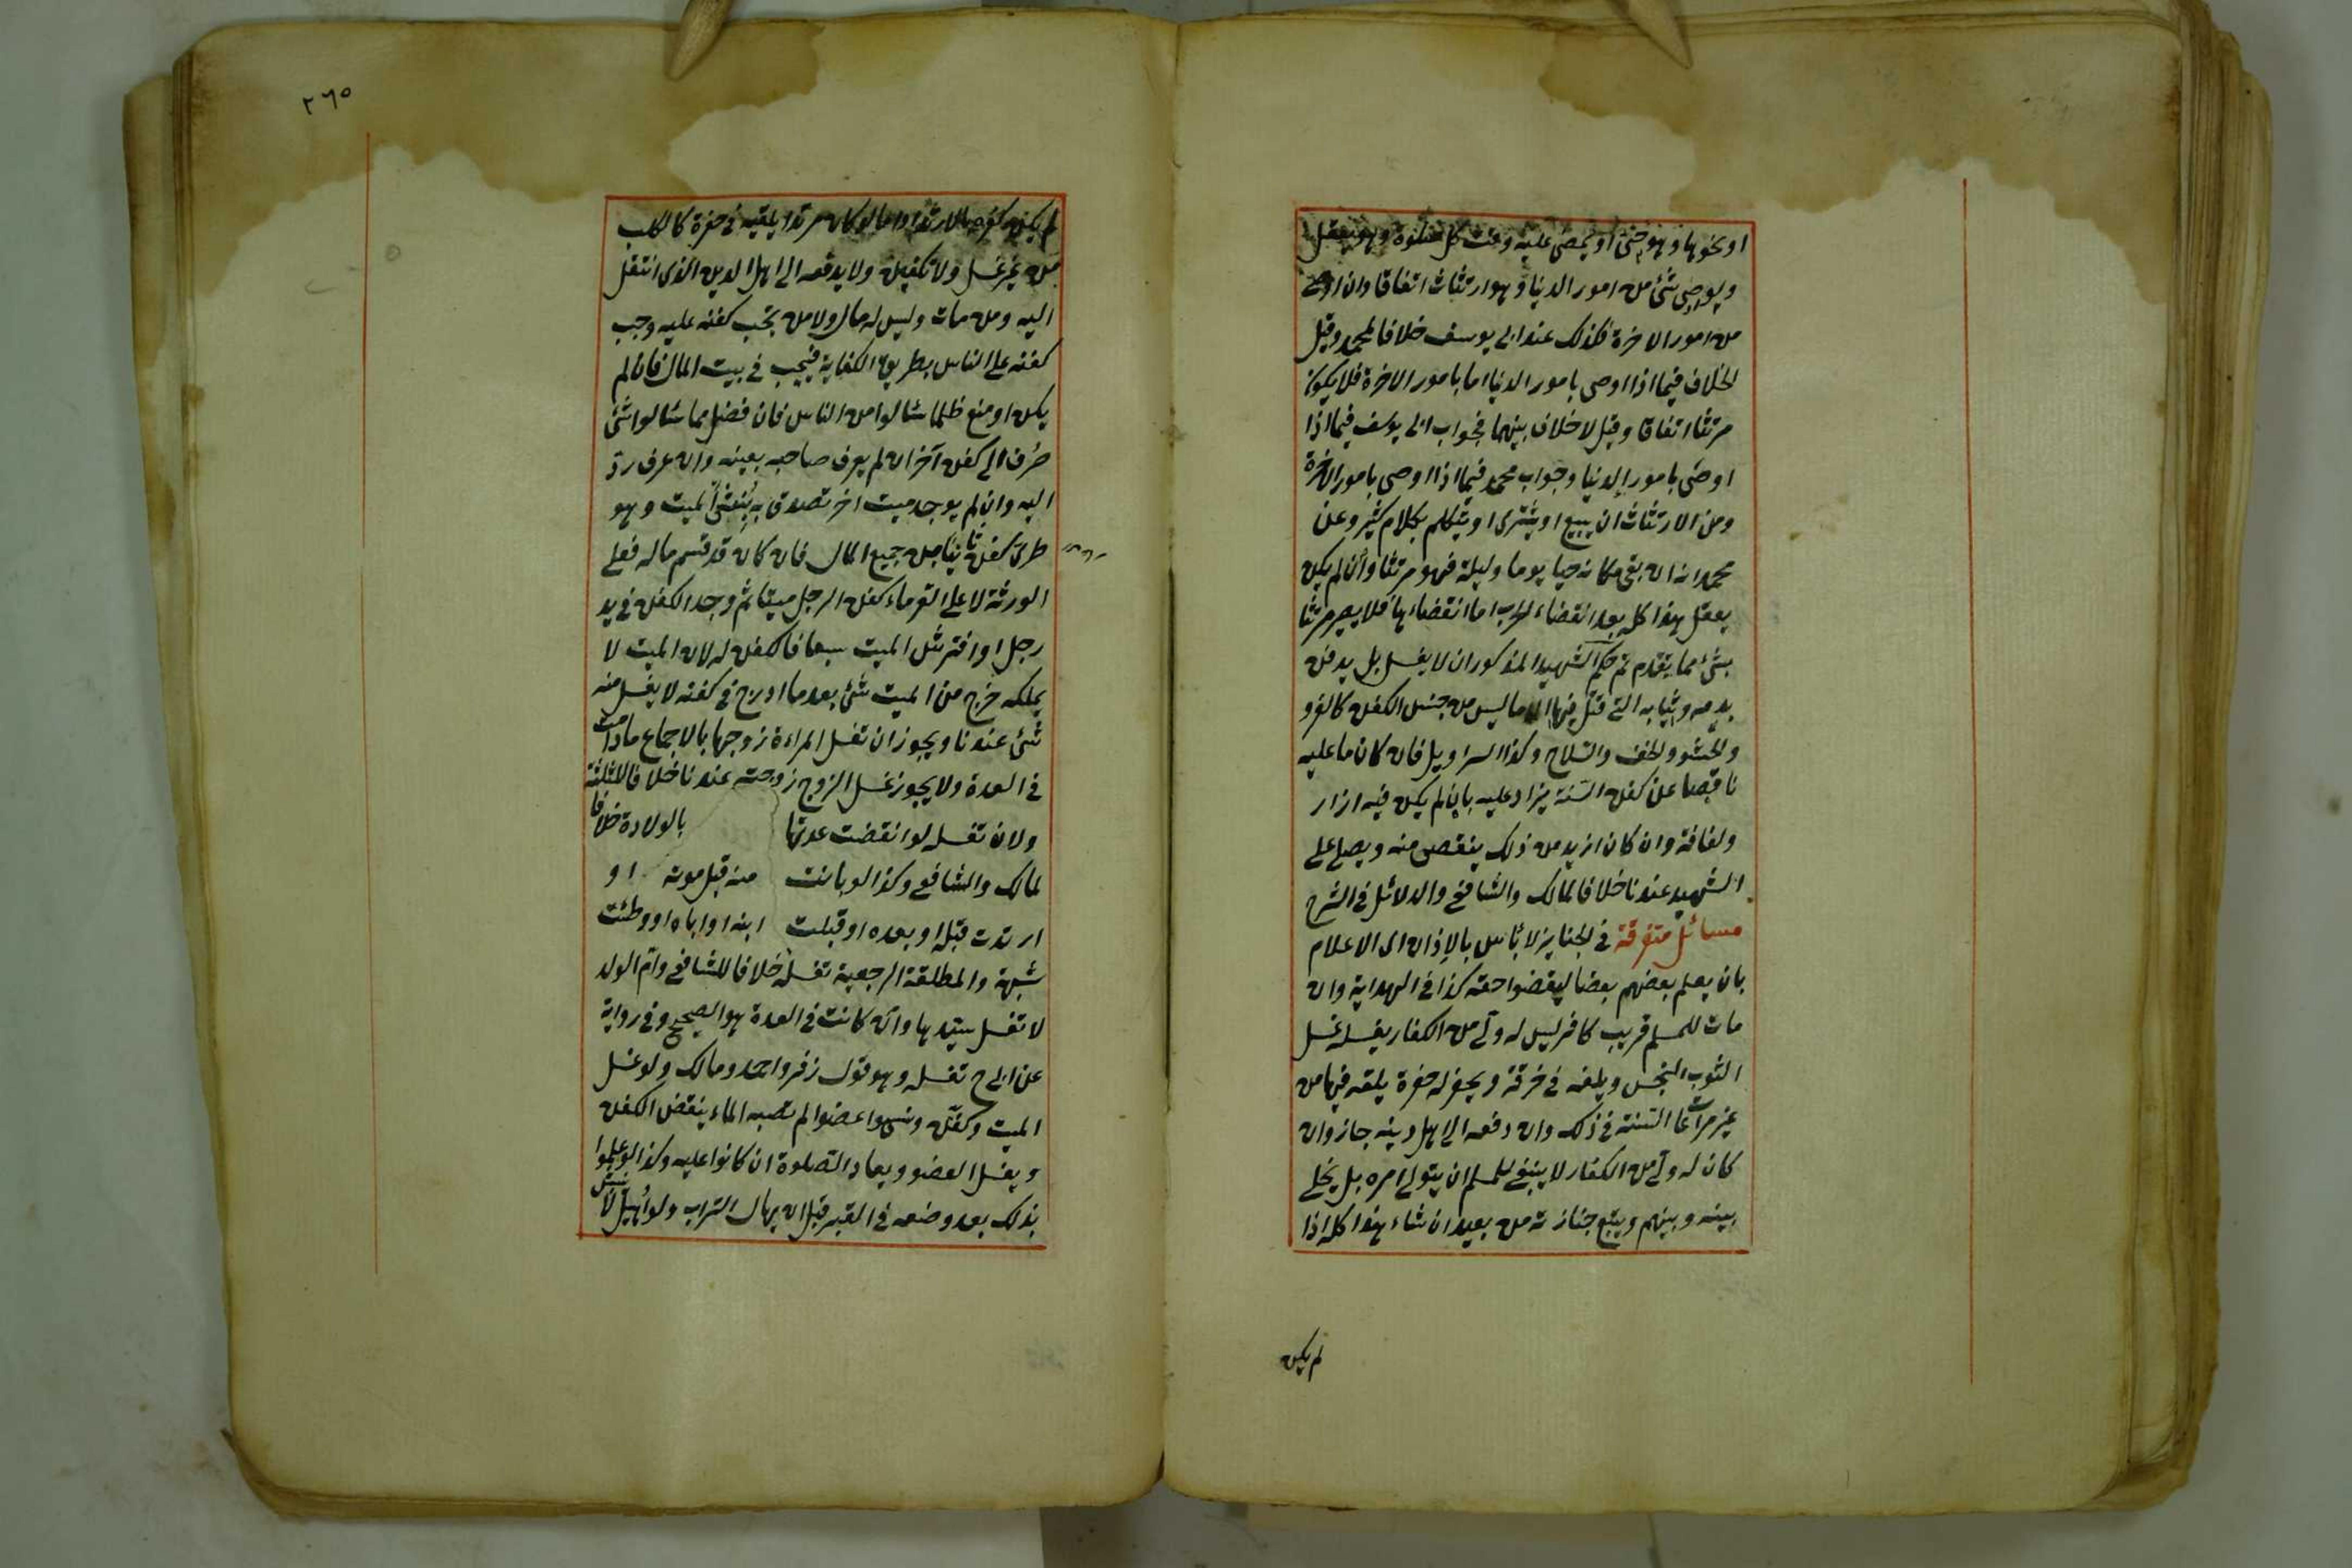 او نحوها وهو حي او يمضي عليه وقت كل صلوة وهو يعقل
ويوصي بشئ من امور الدنيا وهو ارتثاث اتفاقا وان اوصى
من امور الاخرة فكذلك عند ابي يوسف خلافا لمحمد وقيل
الخلاف فيما اذا اوصى بامور الدنيا اما بامور الاخرة فلا يكون
مرتثا اتفاقا وقيل لا خلاف بينهما فجواب ابي يوسف فيما اذا
اوصى بامور الدنيا وجواب محمد فيما اذا اوصى بامور الاخرة
ومن الارتثاث ان يبيع او يشترى او يتكلم بكلام كثير وعن
محمد انه ان بقى مكانه حيا يوما وليلة فهو مرتثا وان لم يكن
يعقل هذا كله بعد انقضاء الحرب اما انقضاءها فلا يصير مرتثا
بشئ مما يتقدم ثم حكم الشهيد المذكور ان لا يغسل بل يدفن
بدمه وثيابه التي قتل فيها الا ما ليس من جنس الكفن كالفرو
والحشو والخف والسلاح وكذا السراويل فان كان ما عليه
ناقصا عن كفن السنة يزاد عليه بان لم يكن فيه ازار
ولفافة وان كان ازيد من ذلك ينقص منه ويصلى على
الشهيد عندنا خلافا لمالك والشافعي والدلائل في الشرح
مسائل متفرقة في الجنايز لا بأس بالاذان اى الاعلام
بان يعلم بعضهم بعضا ليقضوا حقه كذا في الهداية وان
مات للمسلم قريب كافر ليس له ولي من الكفار يغسله غسل
الثوب النجس ويلفه في خرقة ويحفر له حفرة يلقه فيها من
غير مراعات السنة في ذلك وان دفعه الى اهل دينه جاز وان
كان له ولي من الكفار لا ينبغي للمسلم ان يتولى امره بل يخلى
بينه وبينهم ويتبع جنازته من بعيد ان شاء هذا كله اذا
لم يكن
٢٦٥
لم يكن كفره بالارتداد اما لو كان مرتدا يلقيه في حفرة كالكلب
من غير غسل ولا تكفين ولا يدفعه الى اهل الدين الذى انتقل
اليه ومن مات وليس له مال ولا من يجب كفنه عليه وجب
كفنه على الناس بطريق الكفاية فيجب في بيت المال فان لم
يكن او منع ظلما سالوا من الناس فان فضل مما سالوا شئ
صرف الى كفن آخر ان لم يعرف صاحبه بعينه وان عرف رد
اليه وان لم يوجد ميت اخر تصدق به نبش الميت وهو
طرى كفن ثانيا من جميع المال فان كان قد قسم ماله فعلى
الورثة لا على الغرماء كفن الرجل ميتا ثم وجد الكفن في يد
رجل او افترش الميت سبعا فالكفن له لان الميت لا
يملكه خرج من الميت شئ بعد ما ادرج في كفنه لا يغسل منه
شئ عندنا ويجوز ان تغسل المراءة زوجها بالاجماع مادامت
في العدة ولا يجوز غسل الزوج زوجته عندنا خلافا للثلثة
ولان تغسله لو انقضت عدتها بالولادة خلافا
لمالك والشافعي وكذا لو بانت منه قبل موته او
ارتدت قبله او بعده او قبلت ابنه او اباه او وطئت
شبهة والمطلقة الرجعية تغسله خلافا للشافعي وام الولد
لا تغسل سيدها وان كانت في العدة هو الصحيح وفي رواية
عن ابي ح تغسله وهو قول زفر واحمد ومالك ولو غسل
الميت وكفن ونسوا عضوا لم تصبه الماء ينقض الكفن
ويغسل العضو ويعاد الصلوة ان كانوا عليه وكذا لو علموا
بذلك بعد وضعه في القبر قبل ان يهال التراب ولو اهيل لا ينبش